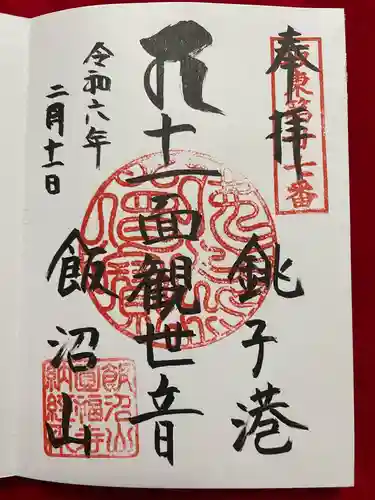 奉拝
坂東第廿七番
銚子港
十一面観世音
令和六年
二月十一日
飯沼山
飯沼山
圓福寺
納経